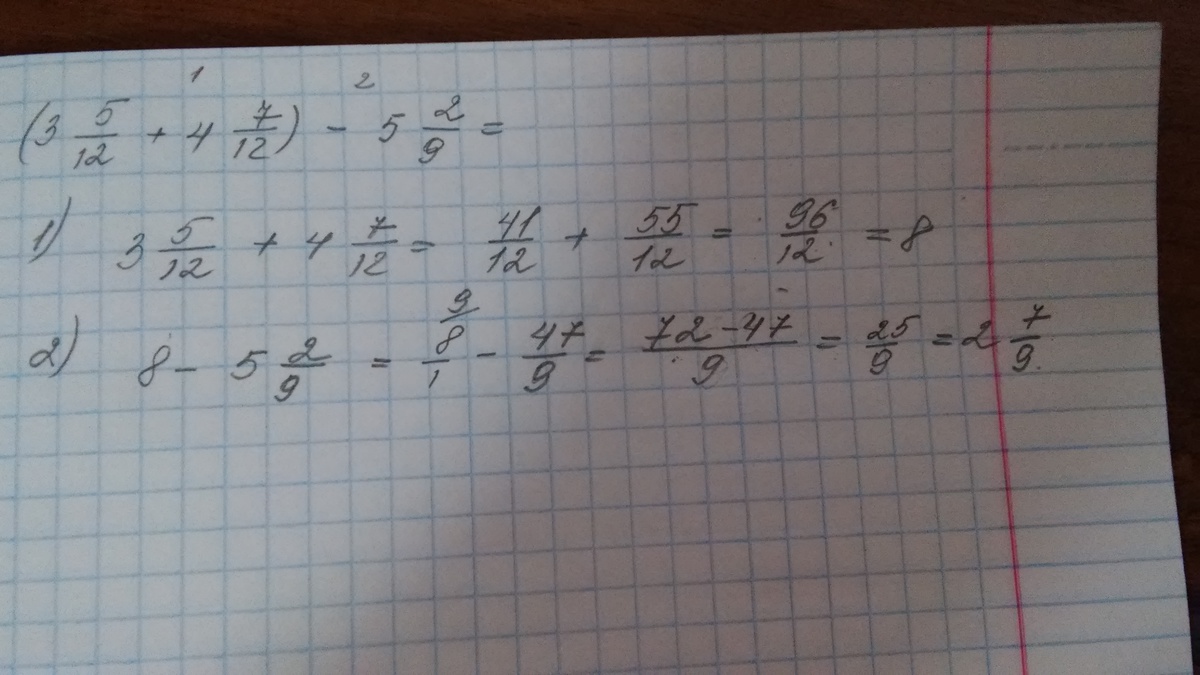 1 2
(3 5/12 + 4 7/12) - 5 2/9 =
1) 3 5/12 + 4 7/12 = 41/12 + 55/12 = 96/12 = 8
9
2) 8 - 5 2/9 = 8/1 - 47/9 = 72-47/9 = 25/9 = 2 7/9